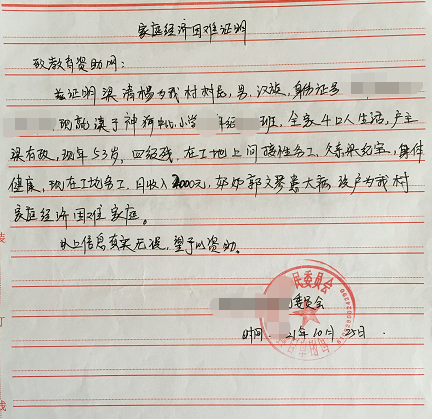 家庭经济困难证明
致教育资助网：
兹证明梁清杨为我村村民，男，汉族，身份证号
现就读于神 小学 年级 班，全家4口人生活，户主
梁有政，现年53岁，四级残，在工地上间隙性务工，父亲梁纪宝，身体
健康，现在工地务工，月收入2000元，奶奶郭文琴患大病，该户为我村
家庭经济困难家庭。
以上信息真实无误，望予以资助。
民委员会
委员会
时间 21年10月25日
装
订
线